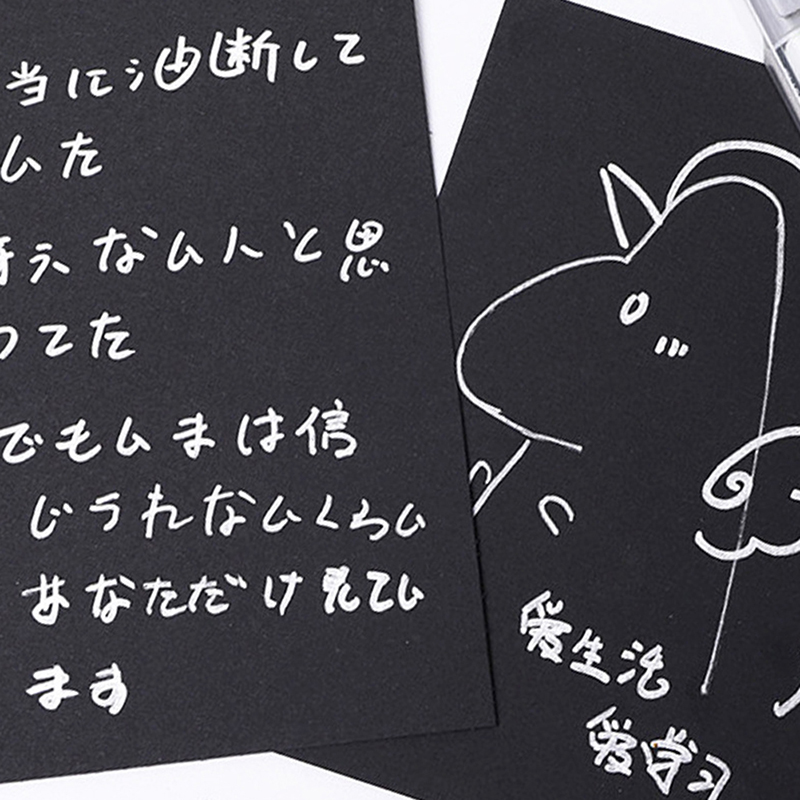 当に油断して
ムた
考えなム人と思
ってた
でもムまは信
じうれなムくらム
あなただけ見てム
ます
爱生活
爱学习